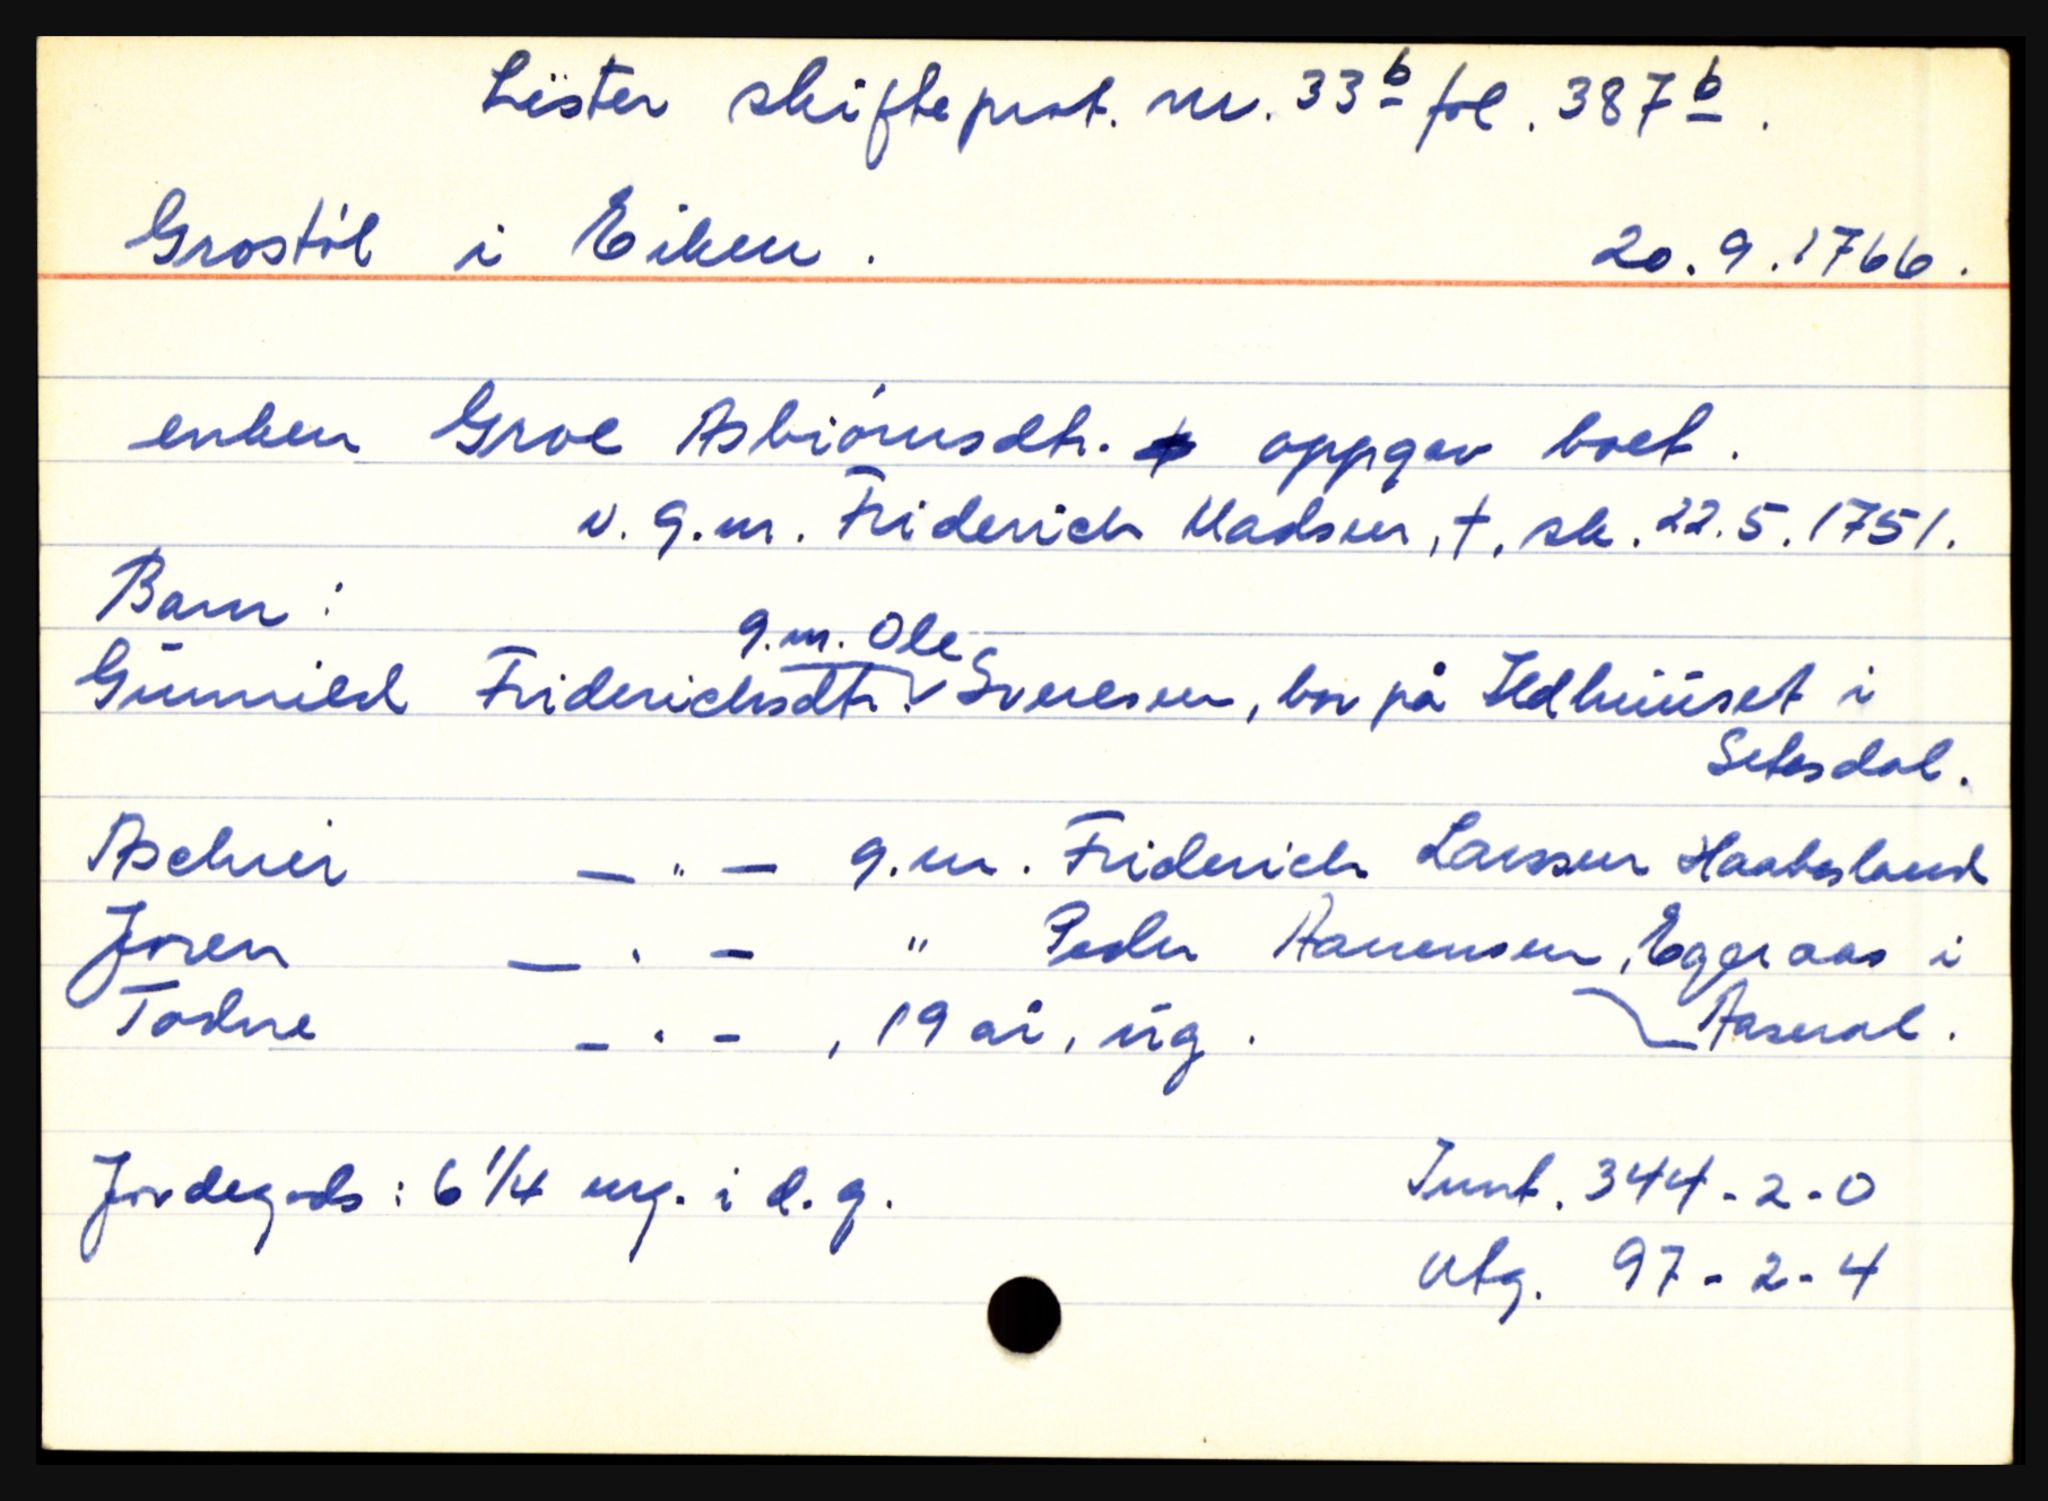 Lister skifteprot. nr. 33b fol. 387b.
Grostöl i Eiken. 20.9.1766.
enken Groe Asbiörnsdtr. oppgav boet.
v. g.m. Friderich Madsen, †, sk. 22.5.1751.
Barn:
g.m. Ole
Gunnild Friderichsdtr. Sveresen, bor på Ildhuuset i
Setesdal.
Aschier — " — g.m. Friderich Larssen Haabesland
Joren — " — " Peder Aanensen, Eggraas i
Todne — " — , 19 år, ug. Aaseral.
Jordegods: 6 1/4 mg. i d. g. Innt. 344-2-0
Utg. 97-2-4